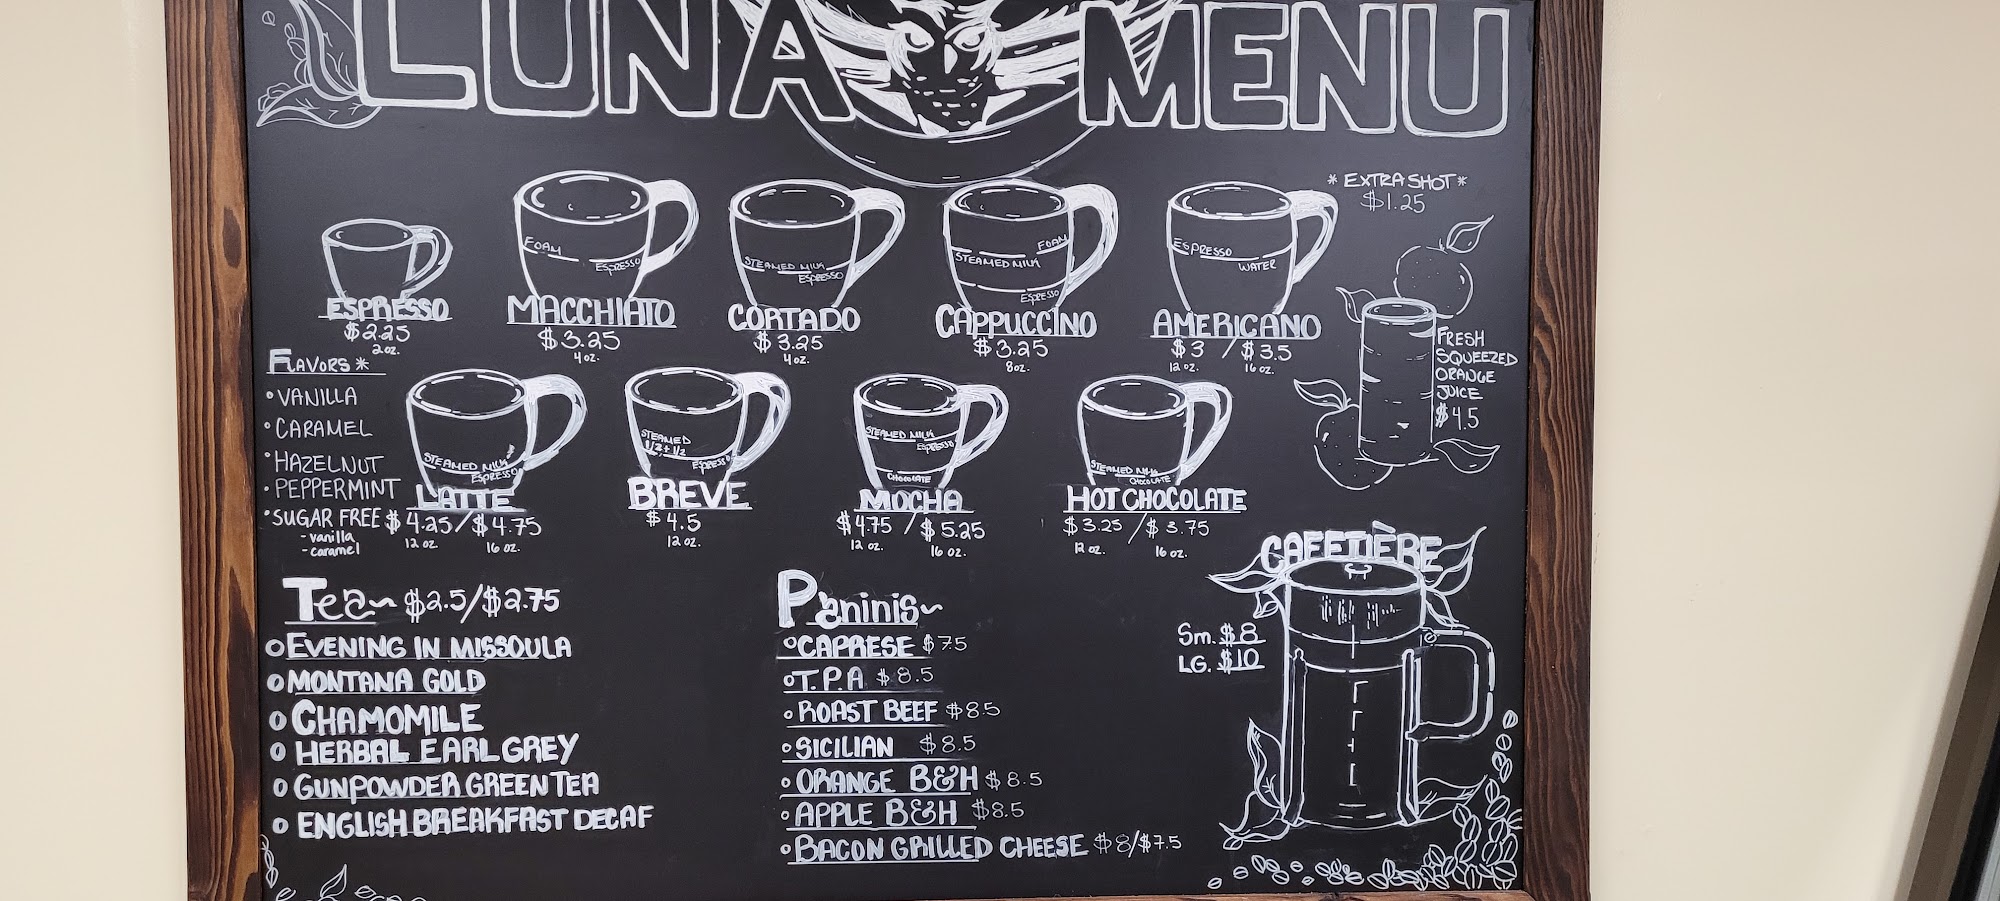 LUNA MENU
* EXTRA SHOT *
$1.25
FOAM
ESPRESSO
STEAMED MILK
ESPRESSO
FOAM
STEAMED MILK
ESPRESSO
ESPRESSO
WATER
ESPRESSO
$2.25
2 oz.
MACCHIATO
$3.25
4 oz.
CORTADO
$3.25
4 oz.
CAPPUCCINO
$3.25
8 oz.
AMERICANO
$3 / $3.5
12 oz. 16 oz.
FRESH
SQUEEZED
ORANGE
JUICE
$4.5
FLAVORS *
• VANILLA
• CARAMEL
• HAZELNUT
• PEPPERMINT
• SUGAR FREE
- vanilla
- caramel
STEAMED MILK
ESPRESSO
LATTE
$4.25 / $4.75
12 oz 16 oz.
STEAMED
1/2 + 1/2
ESPRESSO
BREVE
$4.5
12 oz.
STEAMED MILK
ESPRESSO
CHOCOLATE
MOCHA
$4.75 / $5.25
12 oz. 16 oz.
STEAMED MILK
CHOCOLATE
HOT CHOCOLATE
$3.25 / $3.75
12 oz. 16 oz.
Tea~ $2.5/$2.75
EVENING IN MISSOULA
MONTANA GOLD
CHAMOMILE
HERBAL EARL GREY
GUNPOWDER GREEN TEA
ENGLISH BREAKFAST DECAF
Paninis~
CAPRESE $7.5
T.P.A $8.5
ROAST BEEF $8.5
SICILIAN $8.5
ORANGE B&H $8.5
APPLE B&H $8.5
BACON GRILLED CHEESE $8/$7.5
CAFETIÈRE
Sm. $8
LG. $10